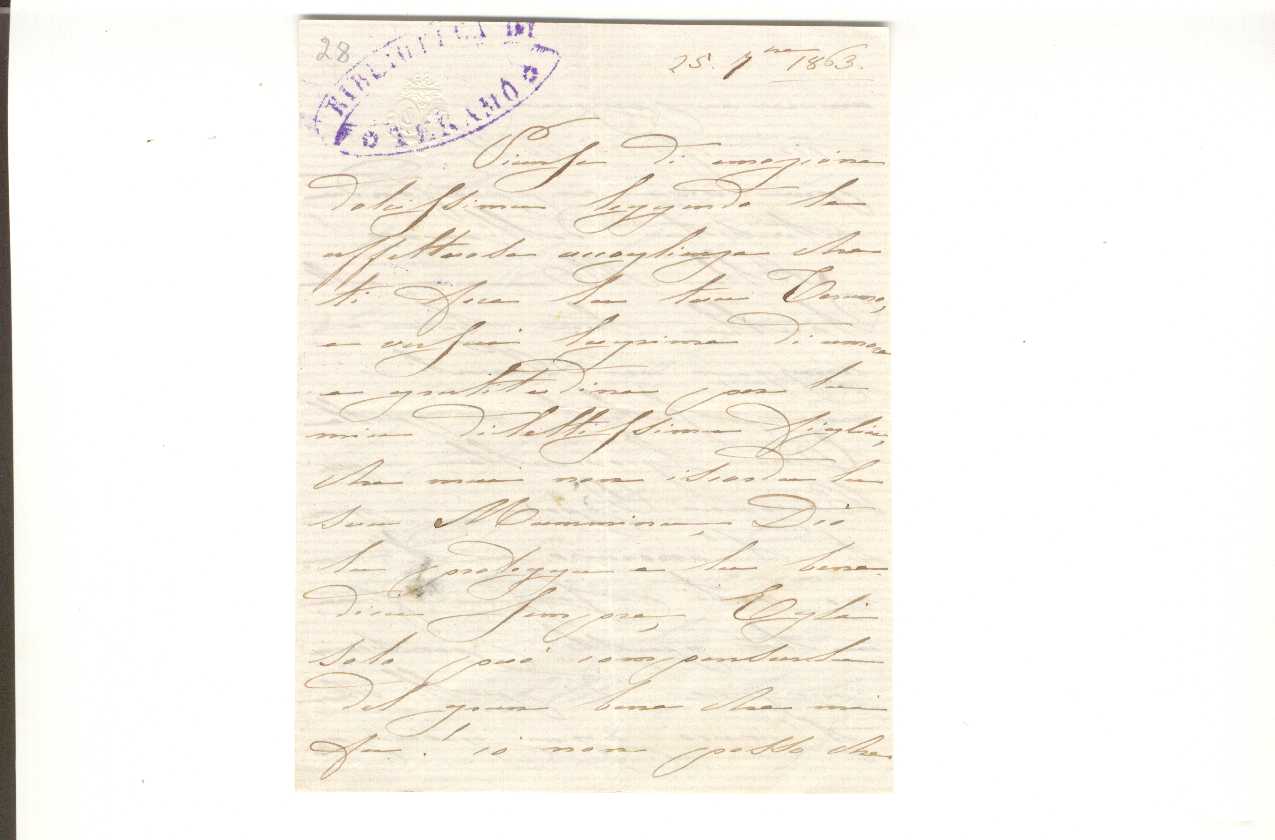 28
BIBLIOTECA DI
TERAMO
25. 7bre 1863.
Piansi di emozione
dolcissima leggendo le
affettuose accoglienze che
ti fece la tua Teramo,
e versai lagrime di amore
e gratitudine per la
mia dilettissima figlia,
che mai non iscorda la
sua Mammina, Dio
la protegga e la bene
dica sempre, Egli
solo può compensarla
del gran bene che mi
fa! io non posso che